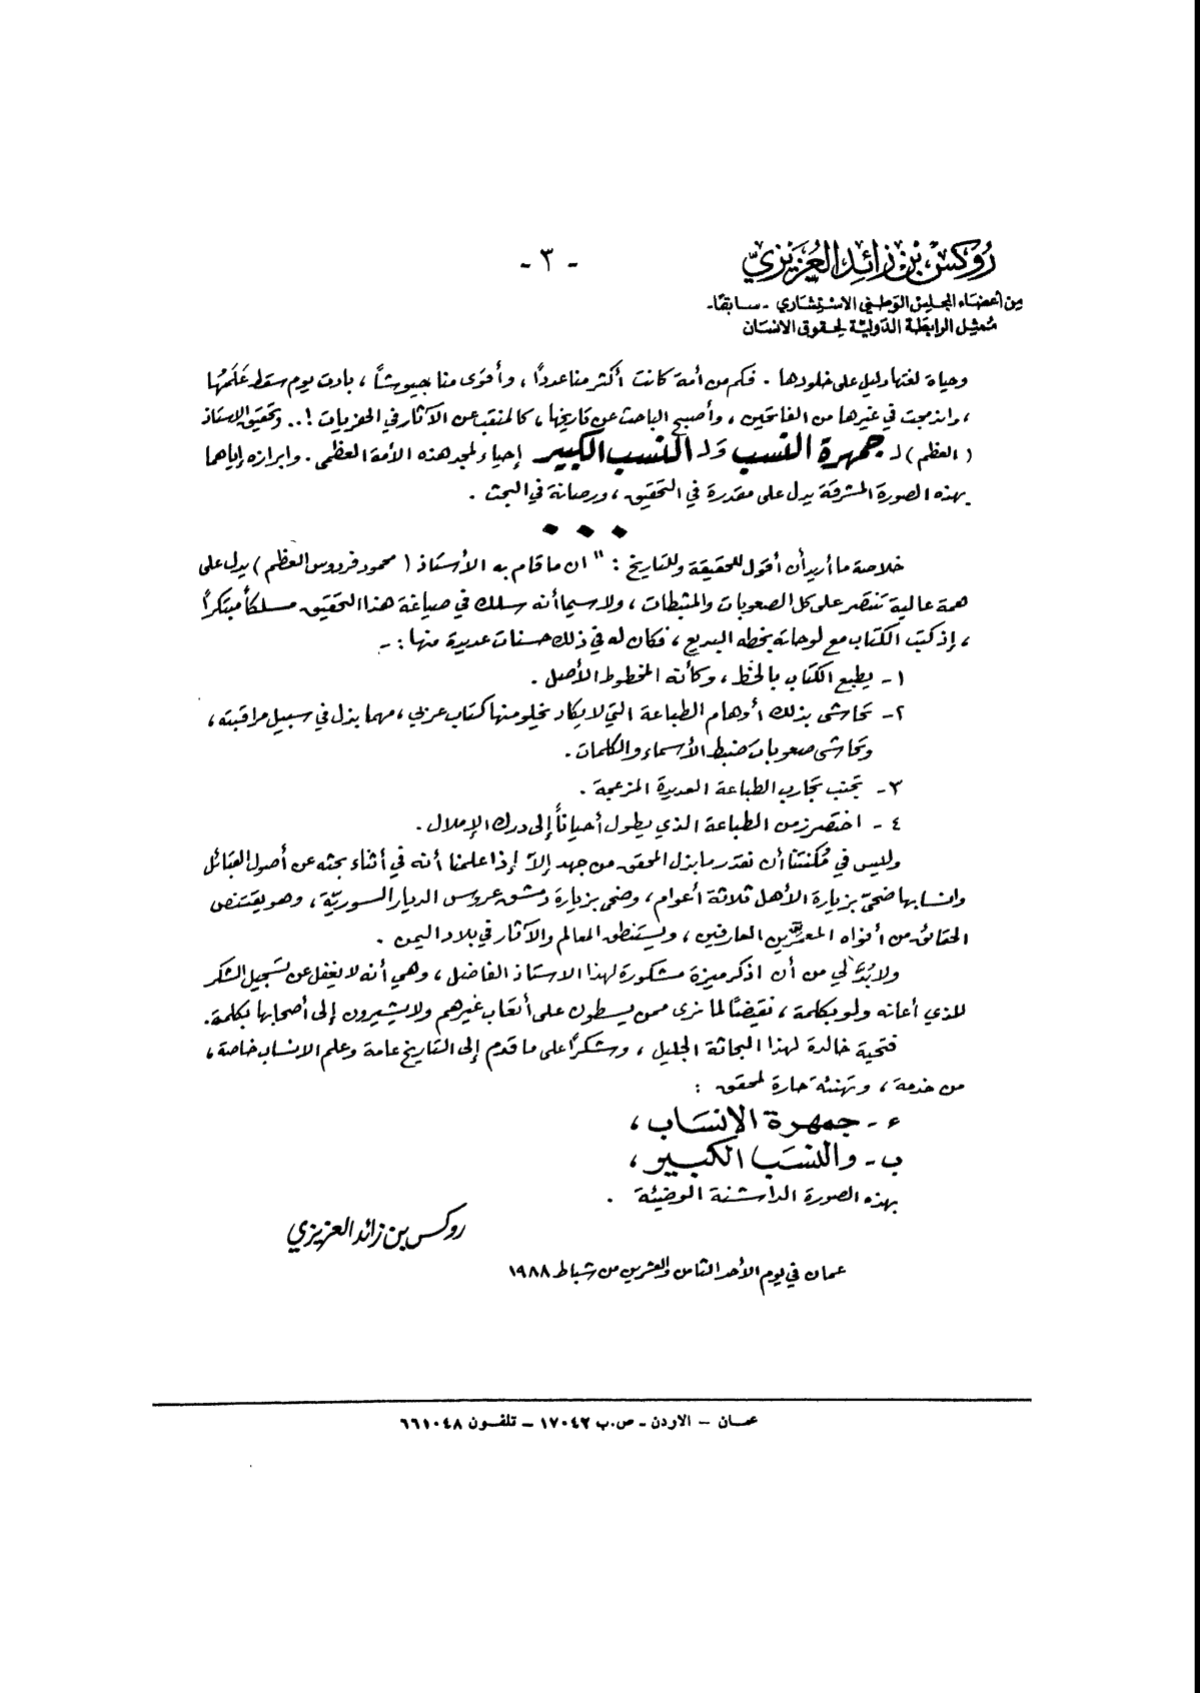 رُوكس بن زائد العُزيزيّ
- ٣ -
من أعضاء المجلس الوطني الاستشاري - سابقًا -
مُمثل الرابطة الدولية لحقوق الانسان
وحياة لغتها دليل على خلودها . فكم من أمة كانت أكثر منا عدداً ، وأقوى منا جيوشاً ، بادت يوم سقط عَلَمُها
، واندمجت في غيرها من الفاتحين ، وأصبح الباحث عن تاريخها ، كالمنقب عن الآثار في الحفريات !.. وتحقيق الاستاذ
( العظم ) لـ جمهرة النسب وَلـ النسب الكبير إحياء لمجد هذه الأمة العظمى . وابرازه إياهما
بهذه الصورة المشرقة يدل على مقدرة في التحقيق ، ورصانة في البحث .
خلاصة ما أريد أن أقول للحقيقة وللتاريخ : " ان ما قام به الأستاذ ( محمود فردوس العظم ) يدل على
همة عالية تنتصر على كل الصعوبات والمثبطات ، ولا سيما أنه سلك في صياغة هذا التحقيق مسلكاً مبتكراً
، إذ كتب الكتاب مع لوحاته بخطه البديع ، فكان له في ذلك حسنات عديدة منها : -
١- يطبع الكتاب بالخط ، وكأنه المخطوط الأصل .
٢- تحاشى بذلك أوهام الطباعة التي لا يكاد يخلو منها كتاب عربي ، مهما بذل في سبيل مراقبته ،
وتحاشى صعوبات ضبط الأسماء والكلمات .
٣- تجنب تجارب الطباعة العديدة المزعجة .
٤ - اختصر زمن الطباعة الذي يطول أحياناً إلى درك الإملال .
وليس في مُكنتنا أن نقدر ما بذل المحقق من جهد إلاّ إذا علمنا أنه في أثناء بحثه عن أصول القبائل
وانسابها ضحّى بزيارة الأهل ثلاثة أعوام ، وضحى بزيارة دمشق عروس الديار السوريّة ، وهو يقتنص
الحقائق من أفواه المعمّرين العارفين ، ويستنطق المعالم والآثار في بلاد اليمن .
ولا بُدَّ لي من أن اذكر ميزة مشكورة لهذا الاستاذ الفاضل ، وهي أنه لا يغفل عن تسجيل الشكر
للذي أعانه ولو بكلمة ، نقيضًا لما نرى ممن يسطون على أتعاب غيرهم ولا يشيرون إلى أصحابها بكلمة .
فتحية خالدة لهذا البحاثة الجليل ، وشكراً على ما قدم إلى التاريخ عامة وعلم الانساب خاصة ،
من خدمة ، وتهنئة حارة لمحقق :
ء - جمهرة الإنساب ،
ب - والنسب الكبير ،
بهذه الصورة الوضيئة .
روكس بن زائد العزيزي
عمان في يوم الأحد الثامن والعشرين من شباط ١٩٨٨
عمان - الاردن - ص.ب ١٧٠٤٢ - تلفون ٦٦١٠٤٨